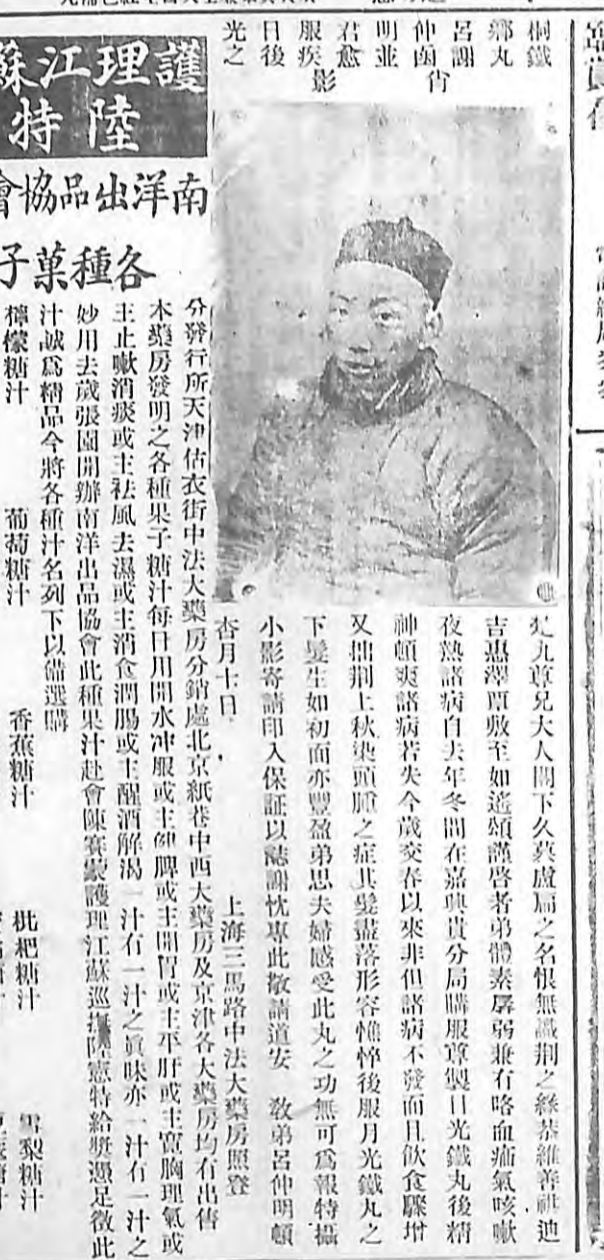 桐鐵
鄉丸
呂謝
仲函
明並
君愈
服疾
日後
光之
肖
影
尊兄大人閣下久慕盧扁之名恨無識荊之緣恭維善祺迪
吉惠澤覃敷至如遙頌謹啓者弟體素孱弱兼有咯血痛氣咳嗽
夜熱諸病自去年冬間在嘉興貴分局購服尊製日光鐵丸後精
神頓爽諸病若失今歲交春以來非但諸病不發而且飲食驟增
又拙荊上秋染頭腫之症其髮盡落形容憔悴後服月光鐵丸之
下髮生如初面亦豐盈弟思夫婦感受此丸之功無可為報特攝
小影寄請印入保証以誌謝忱專此敬請道安 教弟呂仲明頓
杏月十日 上海三馬路中法大藥房照登
分發行所天津估衣街中法大藥房分銷處北京紙巷中西大藥房及京津各大藥房均有出售
護理江蘇
陸特
南洋出品協會
各種菓子
本藥房發明之各種果子糖汁每日用開水冲服或主健脾或主開胃或主平肝或主寬胸理氣或
主止嗽消痰或主祛風去濕或主消食潤腸或主醒酒解渴一汁有一汁之眞味亦一汁有一汁之
妙用去歲張園開辦南洋出品協會此種果汁赴會陳賽蒙護理江蘇巡撫陸憲特給獎憑足徵此
汁誠爲精品今將各種汁名列下以備選購
檸檬糖汁 葡萄糖汁 香蕉糖汁 枇杷糖汁 雪梨糖汁